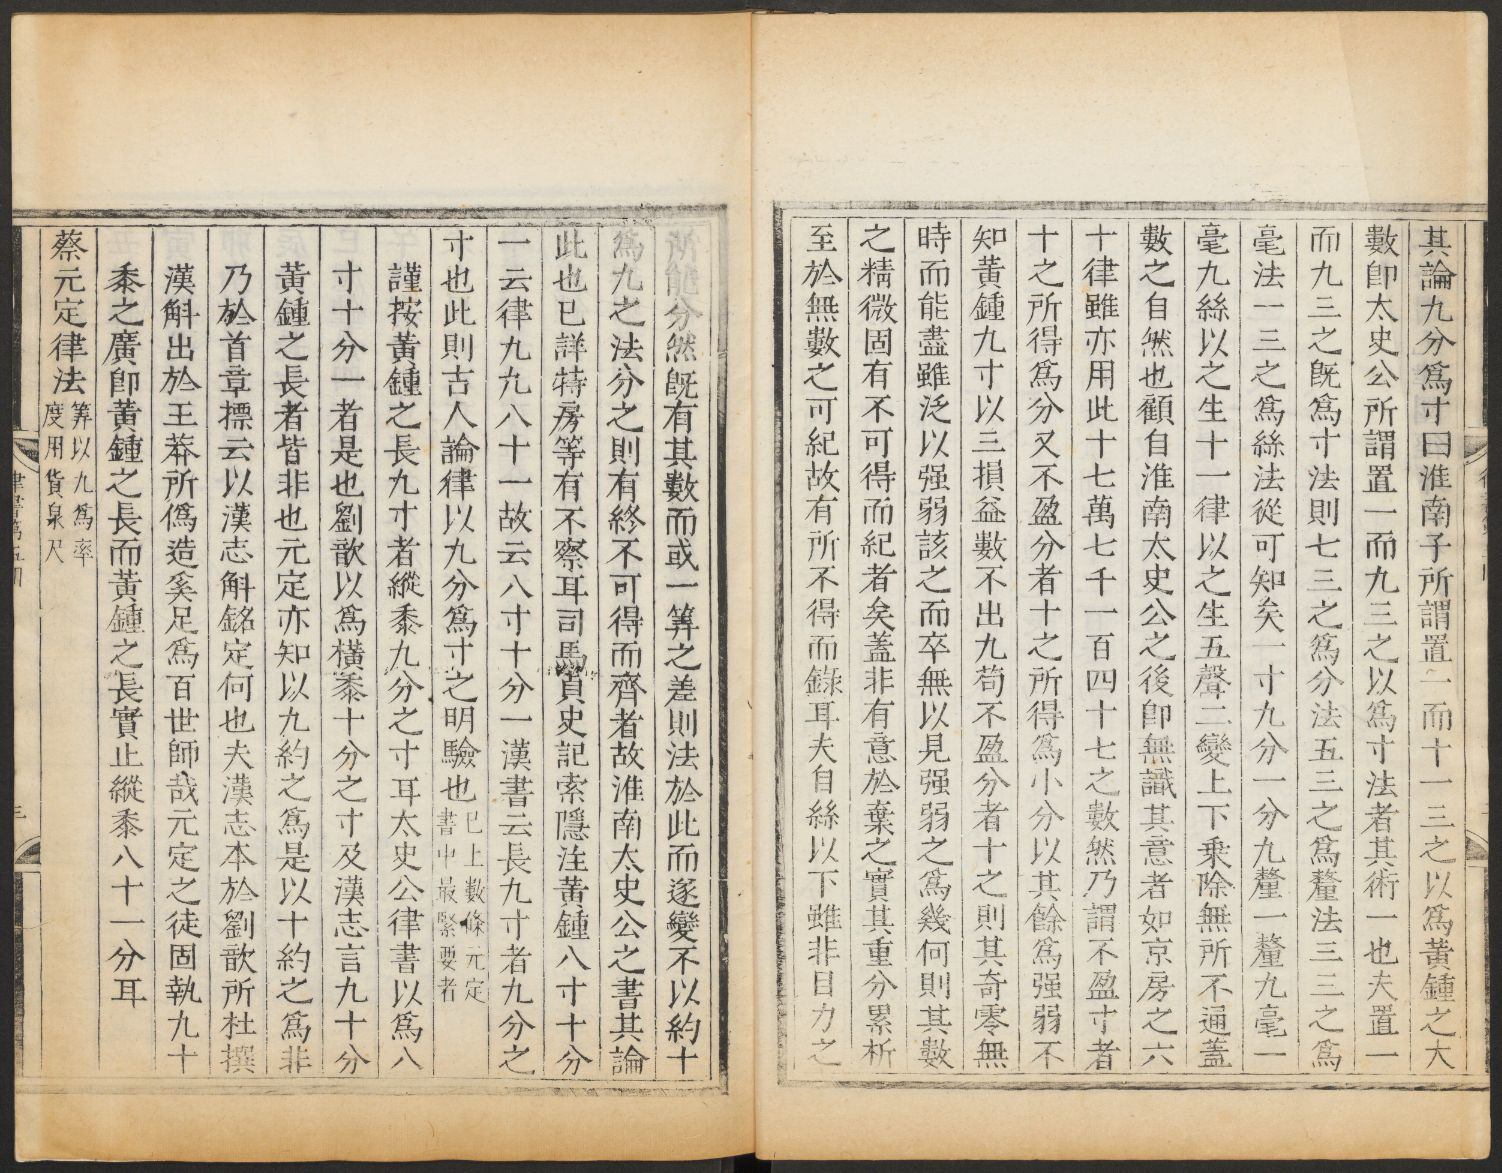 其論九分爲寸曰淮南子所謂置一而十一三之以爲黃鍾之大
數卽太史公所謂置一而九三之以爲寸法者其術一也夫置一
而九三之旣爲寸法則七三之爲分法五三之爲釐法三三之爲
毫法一三之爲絲法從可知矣一寸九分一分九釐一釐九毫一
毫九絲以之生十一律以之生五聲二變上下乗除無所不通蓋
數之自然也顧自淮南太史公之後卽無識其意者如京房之六
十律雖亦用此十七萬七千一百四十七之數然乃謂不盈寸者
十之所得爲分又不盈分者十之所得爲小分以其餘爲强弱不
知黃鍾九寸以三損益數不出九苟不盈分者十之則其奇零無
時而能盡雖泛以强弱該之而卒無以見强弱之爲幾何則其數
之精微固有不可得而紀者矣蓋非有意於棄之實其重分累析
至於無數之可紀故有所不得而錄耳夫自絲以下雖非目力之
所能分然旣有其數而或一筭之差則法於此而遂變不以約十
爲九之法分之則有終不可得而齊者故淮南太史公之書其論
此也已詳特房等有不察耳司馬貞史記索隱注黃鍾八寸十分
一云律九九八十一故云八寸十分一漢書云長九寸者九分之
寸也此則古人論律以九分爲寸之明驗也已上數條元定
書中最緊要者
謹按黃鍾之長九寸者縱黍九分之寸耳太史公律書以爲八
寸十分一者是也劉歆以爲橫黍十分之寸及漢志言九十分
黃鍾之長者皆非也元定亦知以九約之爲是以十約之爲非
乃於首章標云以漢志斛銘定何也夫漢志本於劉歆所杜撰
漢斛出於王莽所僞造奚足爲百世師哉元定之徒固執九十
黍之廣卽黃鍾之長而黃鍾之長實止縱黍八十一分耳
蔡元定律法筭以九爲率
度用貨泉尺